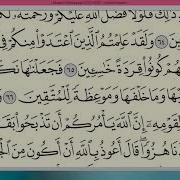 ذَٰلِكَ فَلَوْلَا فَضْلُ اللَّهِ عَلَيْكُمْ وَرَحْمَتُهُ
٦٤ وَلَقَدْ عَلِمْتُمُ الَّذِينَ اعْتَدَوْا مِنكُمْ فِي
هُمْ كُونُوا قِرَدَةً خَاسِئِينَ ٦٥ فَجَعَلْنَاهَا نَكَ
هَا وَمَا خَلْفَهَا وَمَوْعِظَةً لِّلْمُتَّقِينَ ٦٦
لِقَوْمِهِ إِنَّ اللَّهَ يَأْمُرُكُمْ أَن تَذْبَحُوا بَقَرَ
نَا هُزُوًا قَالَ أَعُوذُ بِاللَّهِ أَنْ أَكُونَ مِنَ الْ